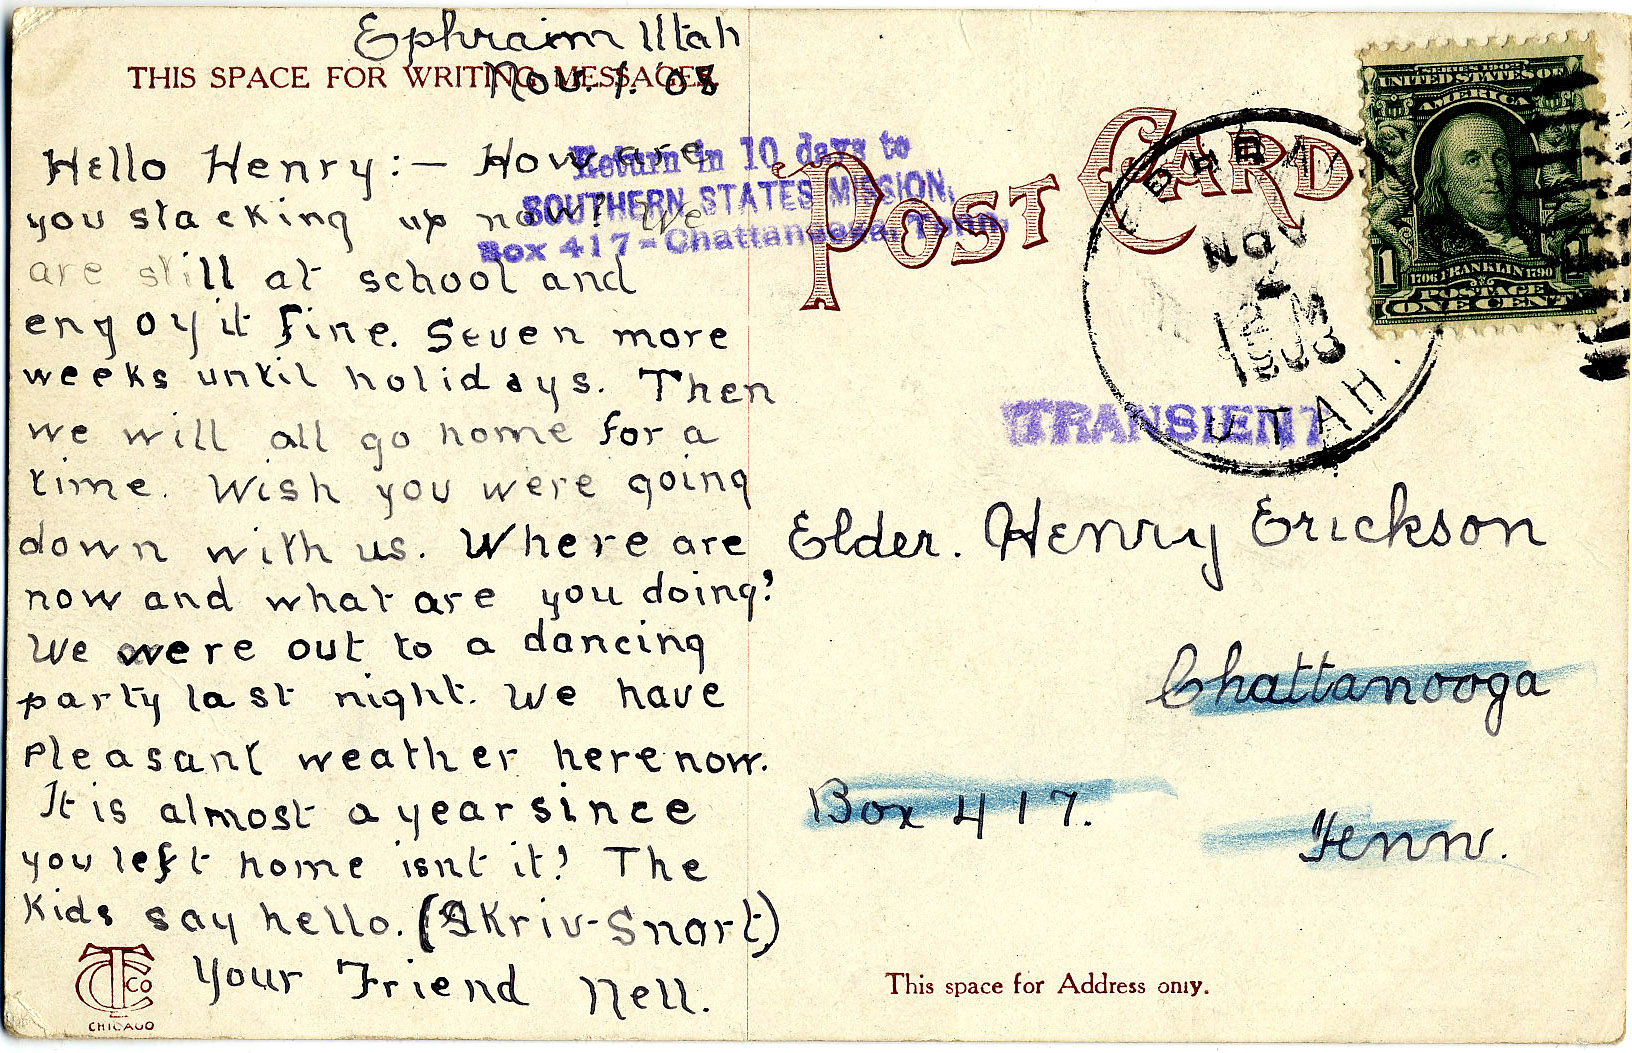 Ephraim Utah
THIS SPACE FOR WRITING MESSAGES.
Nov. 1. 08
Hello Henry:— How are
you stacking up now? We
are still at school and
engoy it fine. Seven more
weeks until holidays. Then
we will all go home for a
time. Wish you were going
down with us. Where are
now and what are you doing?
We were out to a dancing
party last night. We have
Pleasant weather here now.
It is almost a year since
you left home isnt it? The
Kids say hello. (Skriv-Snart)
Your Friend Nell.
CTCo
CHICAGO
Return in 10 days to
SOUTHERN STATES MISSION,
Box 417-Chattanooga, Tenn.
POST CARD
EPHRAIM
NOV
2
12 M
1908
UTAH.
SERIES 1902
UNITED STATES OF
AMERICA
1
1706 FRANKLIN 1790
POSTAGE
ONE CENT
TRANSIENT
Elder. Henry Erickson
Chattanooga
Box 417.
Tenn.
This space for Address only.